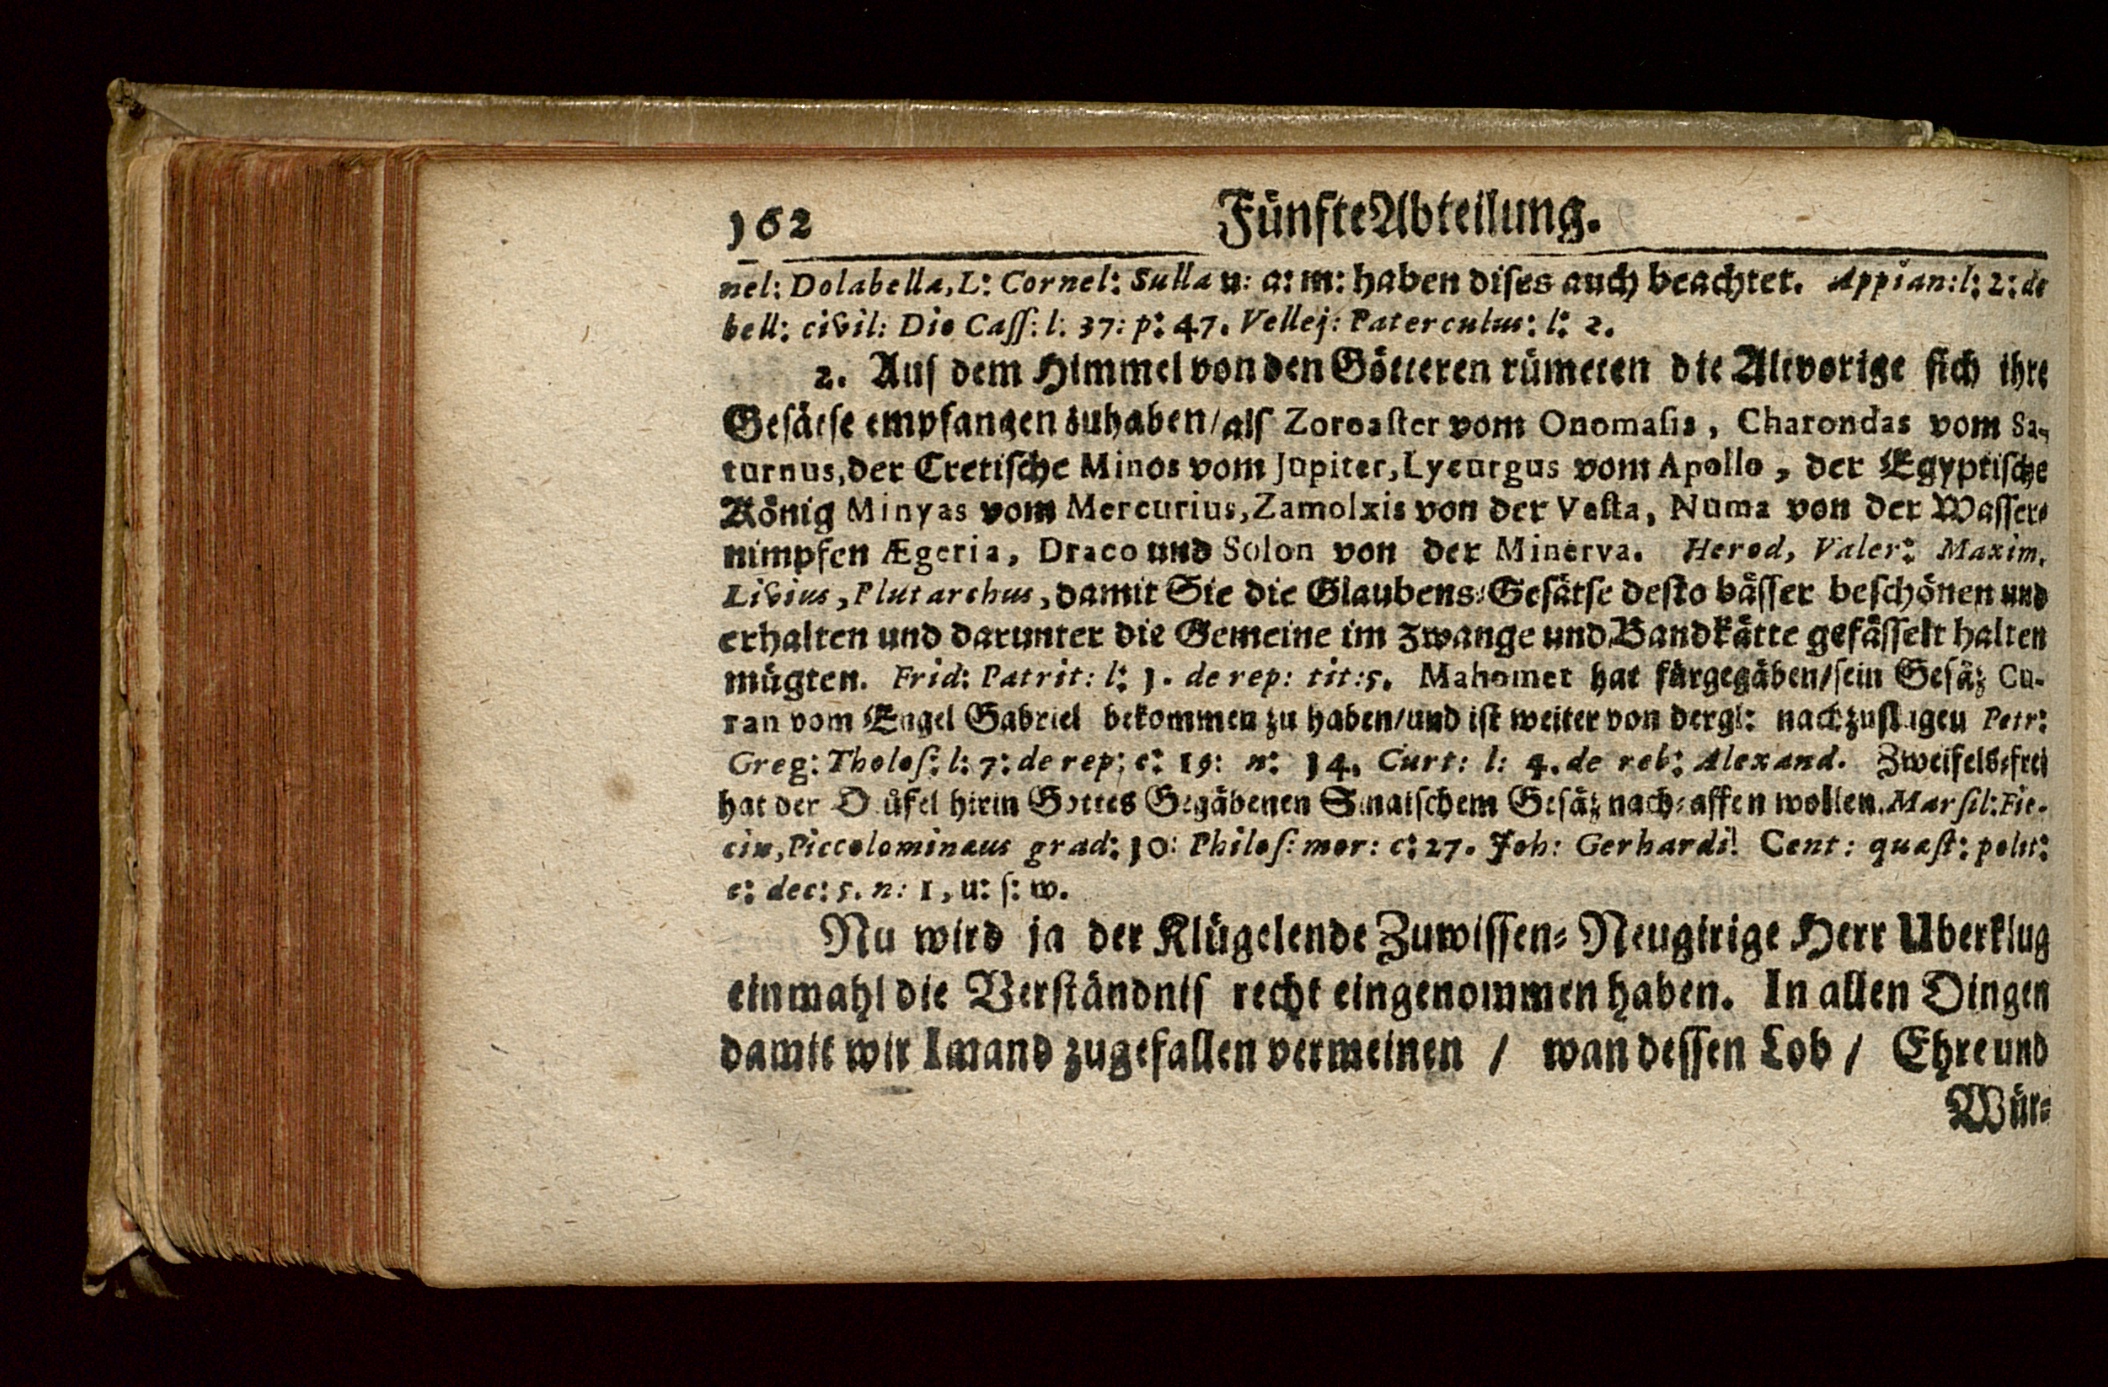 162 Fünfte Abteilung.
nel: Dolabella, L: Cornel: Sulla u: a: m: haben dises auch beachtet. Appian: l: 2: de
bell: civil: Dio Cass: l: 37: p: 47. Vellej: Paterculus: l: 2.
2. Aus dem Himmel von den Götteren rümeten die Altvorige sich ihre
Gesätse empfangen zuhaben / als Zoroaster vom Onomasis, Charondas vom Sa-
turnus, der Cretische Minos vom Jupiter, Lycurgus vom Apollo, der Egyptische
König Minyas vom Mercurius, Zamolxis von der Vesta, Numa von der Wasser-
nimpfen Ægeria, Draco und Solon von der Minerva. Herod, Valer: Maxim.
Livius, Plutarchus, damit Sie die Glaubens-Gesätse desto bässer beschönen und
erhalten und darunter die Gemeine im zwange und Bandkätte gefässelt halten
mügten. Frid: Patrit: l: 1. de rep: tit: 5. Mahomet hat fürgegäben / sein Gesäz Cu-
ran vom Engel Gabriel bekommen zu haben / und ist weiter von dergl: nachzuslagen Petr:
Greg: Tholos: l: 7: de rep: c: 19: n: 14. Curt: l: 4. de reb: Alexand. Zweifels-frei
hat der Düfel hirin Gottes Gegäbenen Sinaischem Gesäz nach-affen wollen. Marsil: Fie-
cin, Piccolominaus grad: 10: Philos: mor: c: 27. Joh: Gerhardi! Cent: quæst: polit:
c: dec: 5. n: 1, u: s: w.
Nu wird ja der Klügelende Zuwissen- Neugirige Herr Uberklug
einmahl die Verständnis recht eingenommen haben. In allen Dingen
damit wir Imand zugefallen vermeinen / wan dessen Lob / Ehre und
Wür-